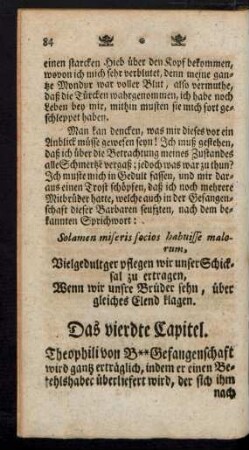 84
einen starcken Hieb über den Kopf bekommen,
wovon ich mich sehr verblutet, denn meine gan-
tze Mondur war voller Blut, also vermuthe,
daß die Türcken wahrgenommen, ich habe noch
Leben bey mir, mithin musten sie mich fort ge-
schleppet haben.
Man kan dencken, was mir dieses vor ein
Anblick müsse gewesen seyn! Ich muß gestehen,
daß ich über die Betrachtung meines Zustandes
alle Schmertzē vergaß; jedoch was war zu thun?
Ich muste mich in Gedult fassen, und mir dar-
aus einen Trost schöpfen, daß ich noch mehrere
Mitbrüder hatte, welche auch in der Gefangen-
schaft dieser Barbaren seufzten, nach dem be-
kannten Sprichwort:
Solamen miseris socios habuisse malo-
rum,
Vielgedultger pflegen wir unser Schick-
sal zu ertragen,
Wenn wir unsre Brüder sehn, über
gleiches Elend klagen.
Das vierdte Capitel.
Theophili von B** Gefangenschaft
wird gantz erträglich, indem er einen Be-
fehlshaber überliefert wird, der sich ihm
nach